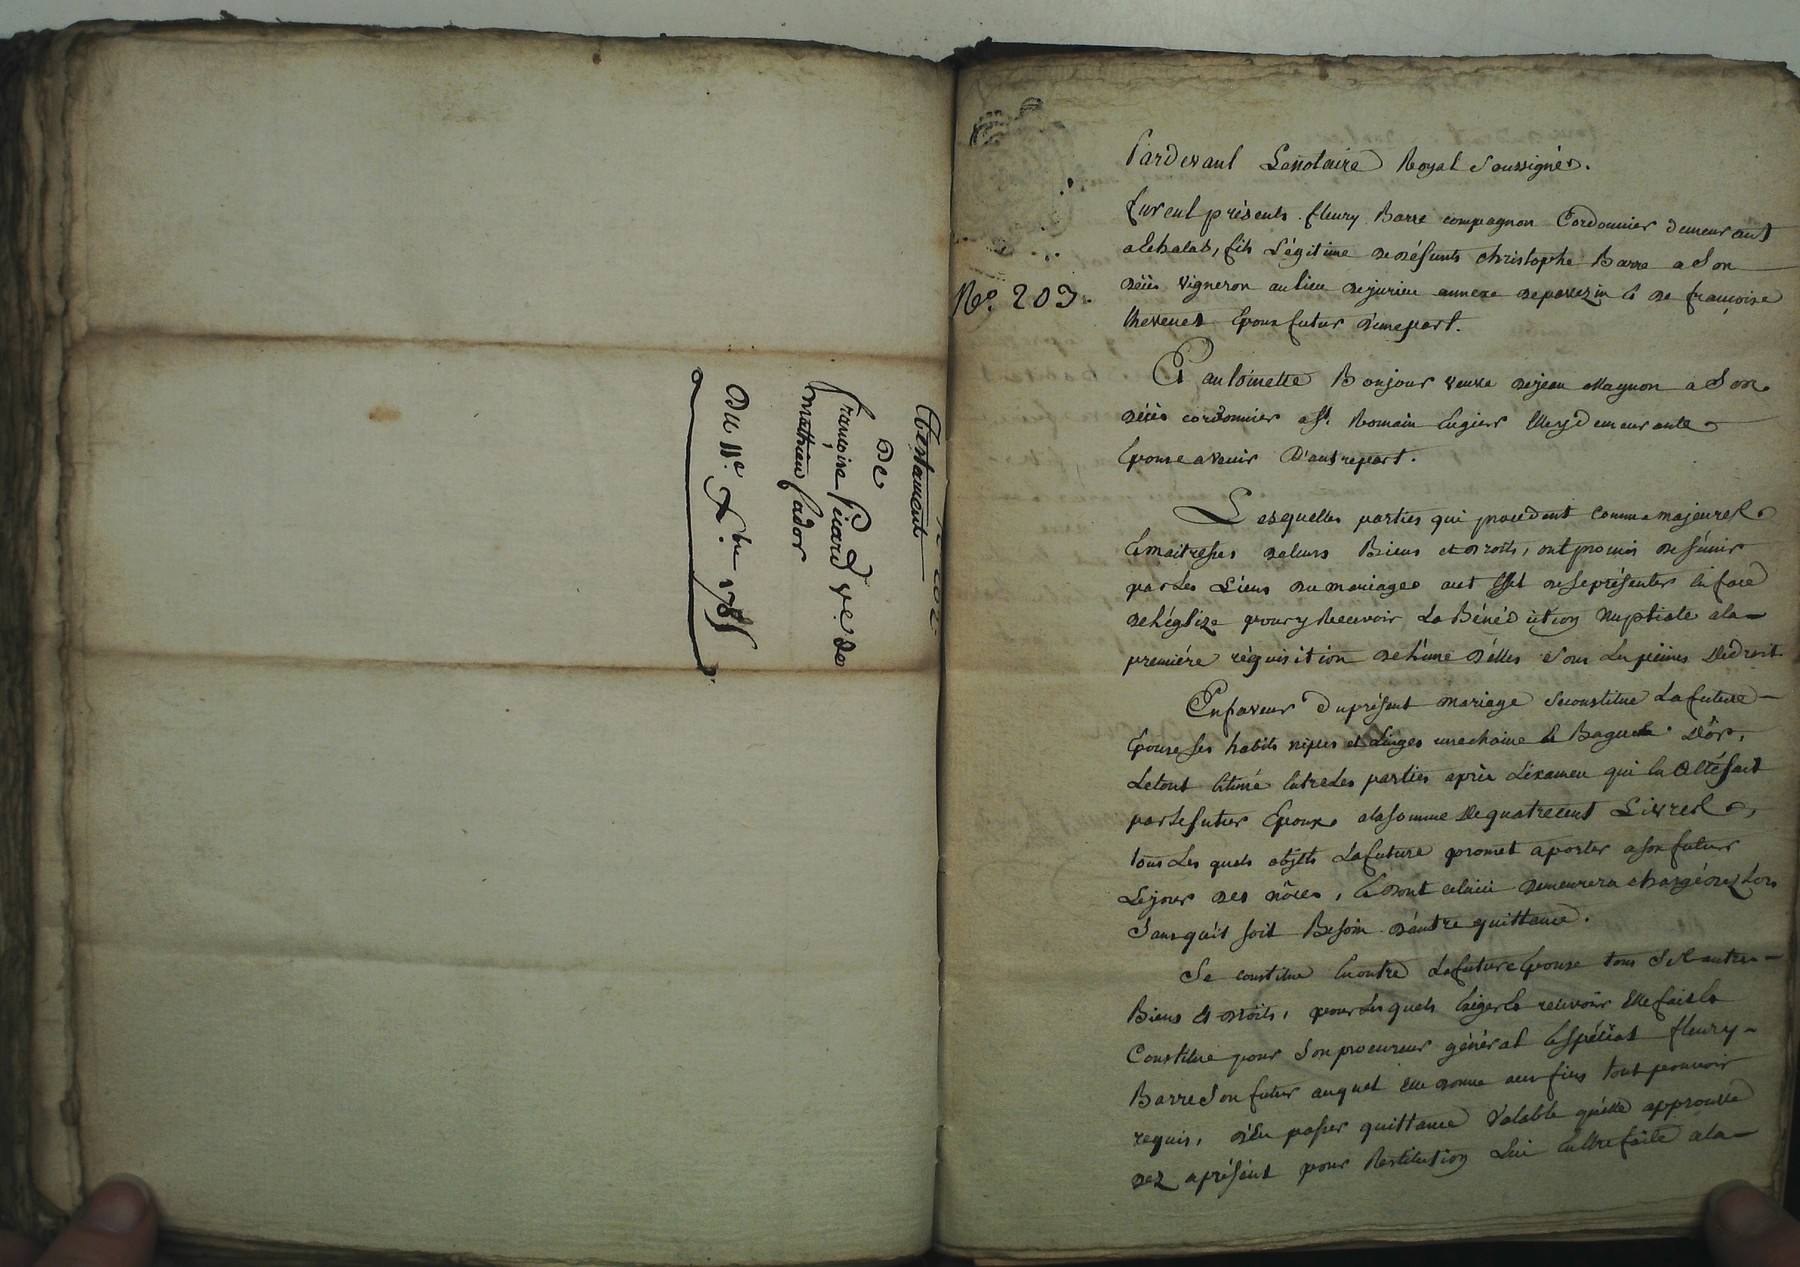 Testament
De
françoise Picard ve. de
mathieu fador
Du 11e. Xbre. 1785
No. 203.
Pardevant Le notaire Royal soussigné.
furent présents fleury Barre compagnon Cordonnier demeurant
a Echalas, fils Légitime de défunts christophe Barre a son
décès vigneron au lieu de jurieu annexe de pavezin & de françoise
thevenet Epoux futur d'une part.
Et antoinette Bonjour veuve de jean Magnon a son
décès cordonnier a st. Romain En giers Elle y demeurante
Epouse a venir D'autre part.
Lesquelles parties qui procedent comme majeures
& maitresses de leurs Biens et droits, ont promis de s'unir
par Les Liens du mariage aut Effet de se présenter En face
de L'église pour y Recevoir La Bénédiction Nuptiale a la
premiére réquisition de L'une d'elles sous Les peines De droit
En faveur du présent mariage se constitue La future
Epouse ses habits nipes et Linges une chaine & Bague D'or,
Le tout Estimé Entre Les parties après L'examen qui En a Eté fait
par Le futur Epoux a la somme De quatre cent Livres,
tous Les quels objets La future promet aporter a son futur
Le jour des nôces, & dont celuici demeurera chargé dez Lors
sans qu'il soit Besoin d'autre quittance.
Se constitue En outre La future Epouse tous ses autres
Biens & droits, pour Les quels Exiger & recevoir Elle fait &
Constitue pour son procureur général & spécial fleury
Barre son futur auquel Elle donne aux fins tout pouvoir
requis, d'En passer quittance valable qu'elle approuve
dez aprésent pour Restitution Lui En Etre faite a la